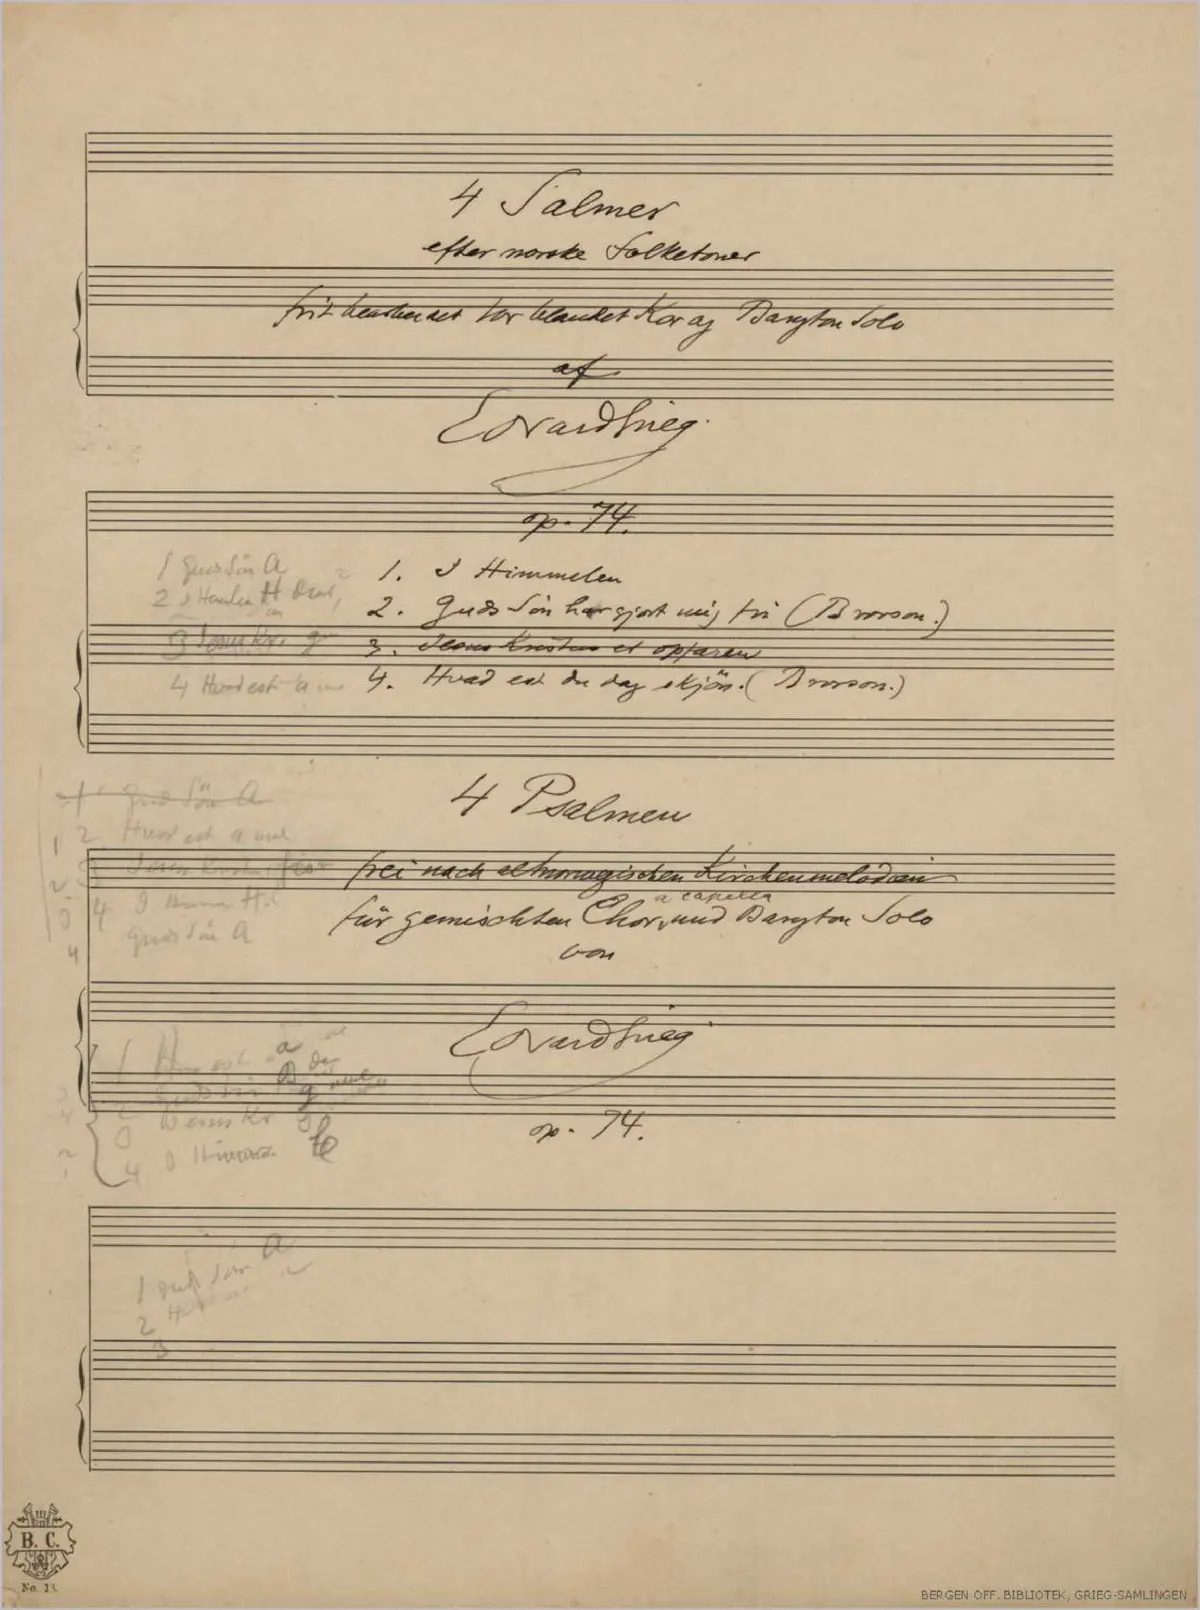 4 Salmer
efter norske Folketoner
frit bearbeidet for blandet Kor og Baryton Solo
af
Edvard Grieg.
op. 74.
1. I Himmelen
2. Guds Søn har gjort mig fri (Brorson.)
3. Jesus Kristus er opfaren
4. Hvad est du dog skjön. (Brorson.)
1 Guds Sön A
2 I H
3 Jesus Kr. g
4 Hvad est
4 Psalmen
frei nach altnorwegischen Kirchenmelodien
a capella
für gemischten Chor und Baryton Solo
von
1 Guds Sön A
1 2 Hvad est
2 3 Jesus
3 4 I H
4 Guds Sön A
Edvard Grieg
op. 74.
1 est a
2 Guds Sön
3 Jesus Kr
4 I Himm
1 Guds Sön A
2
3
B. C.
No. 13.
BERGEN OFF. BIBLIOTEK, GRIEG-SAMLINGEN